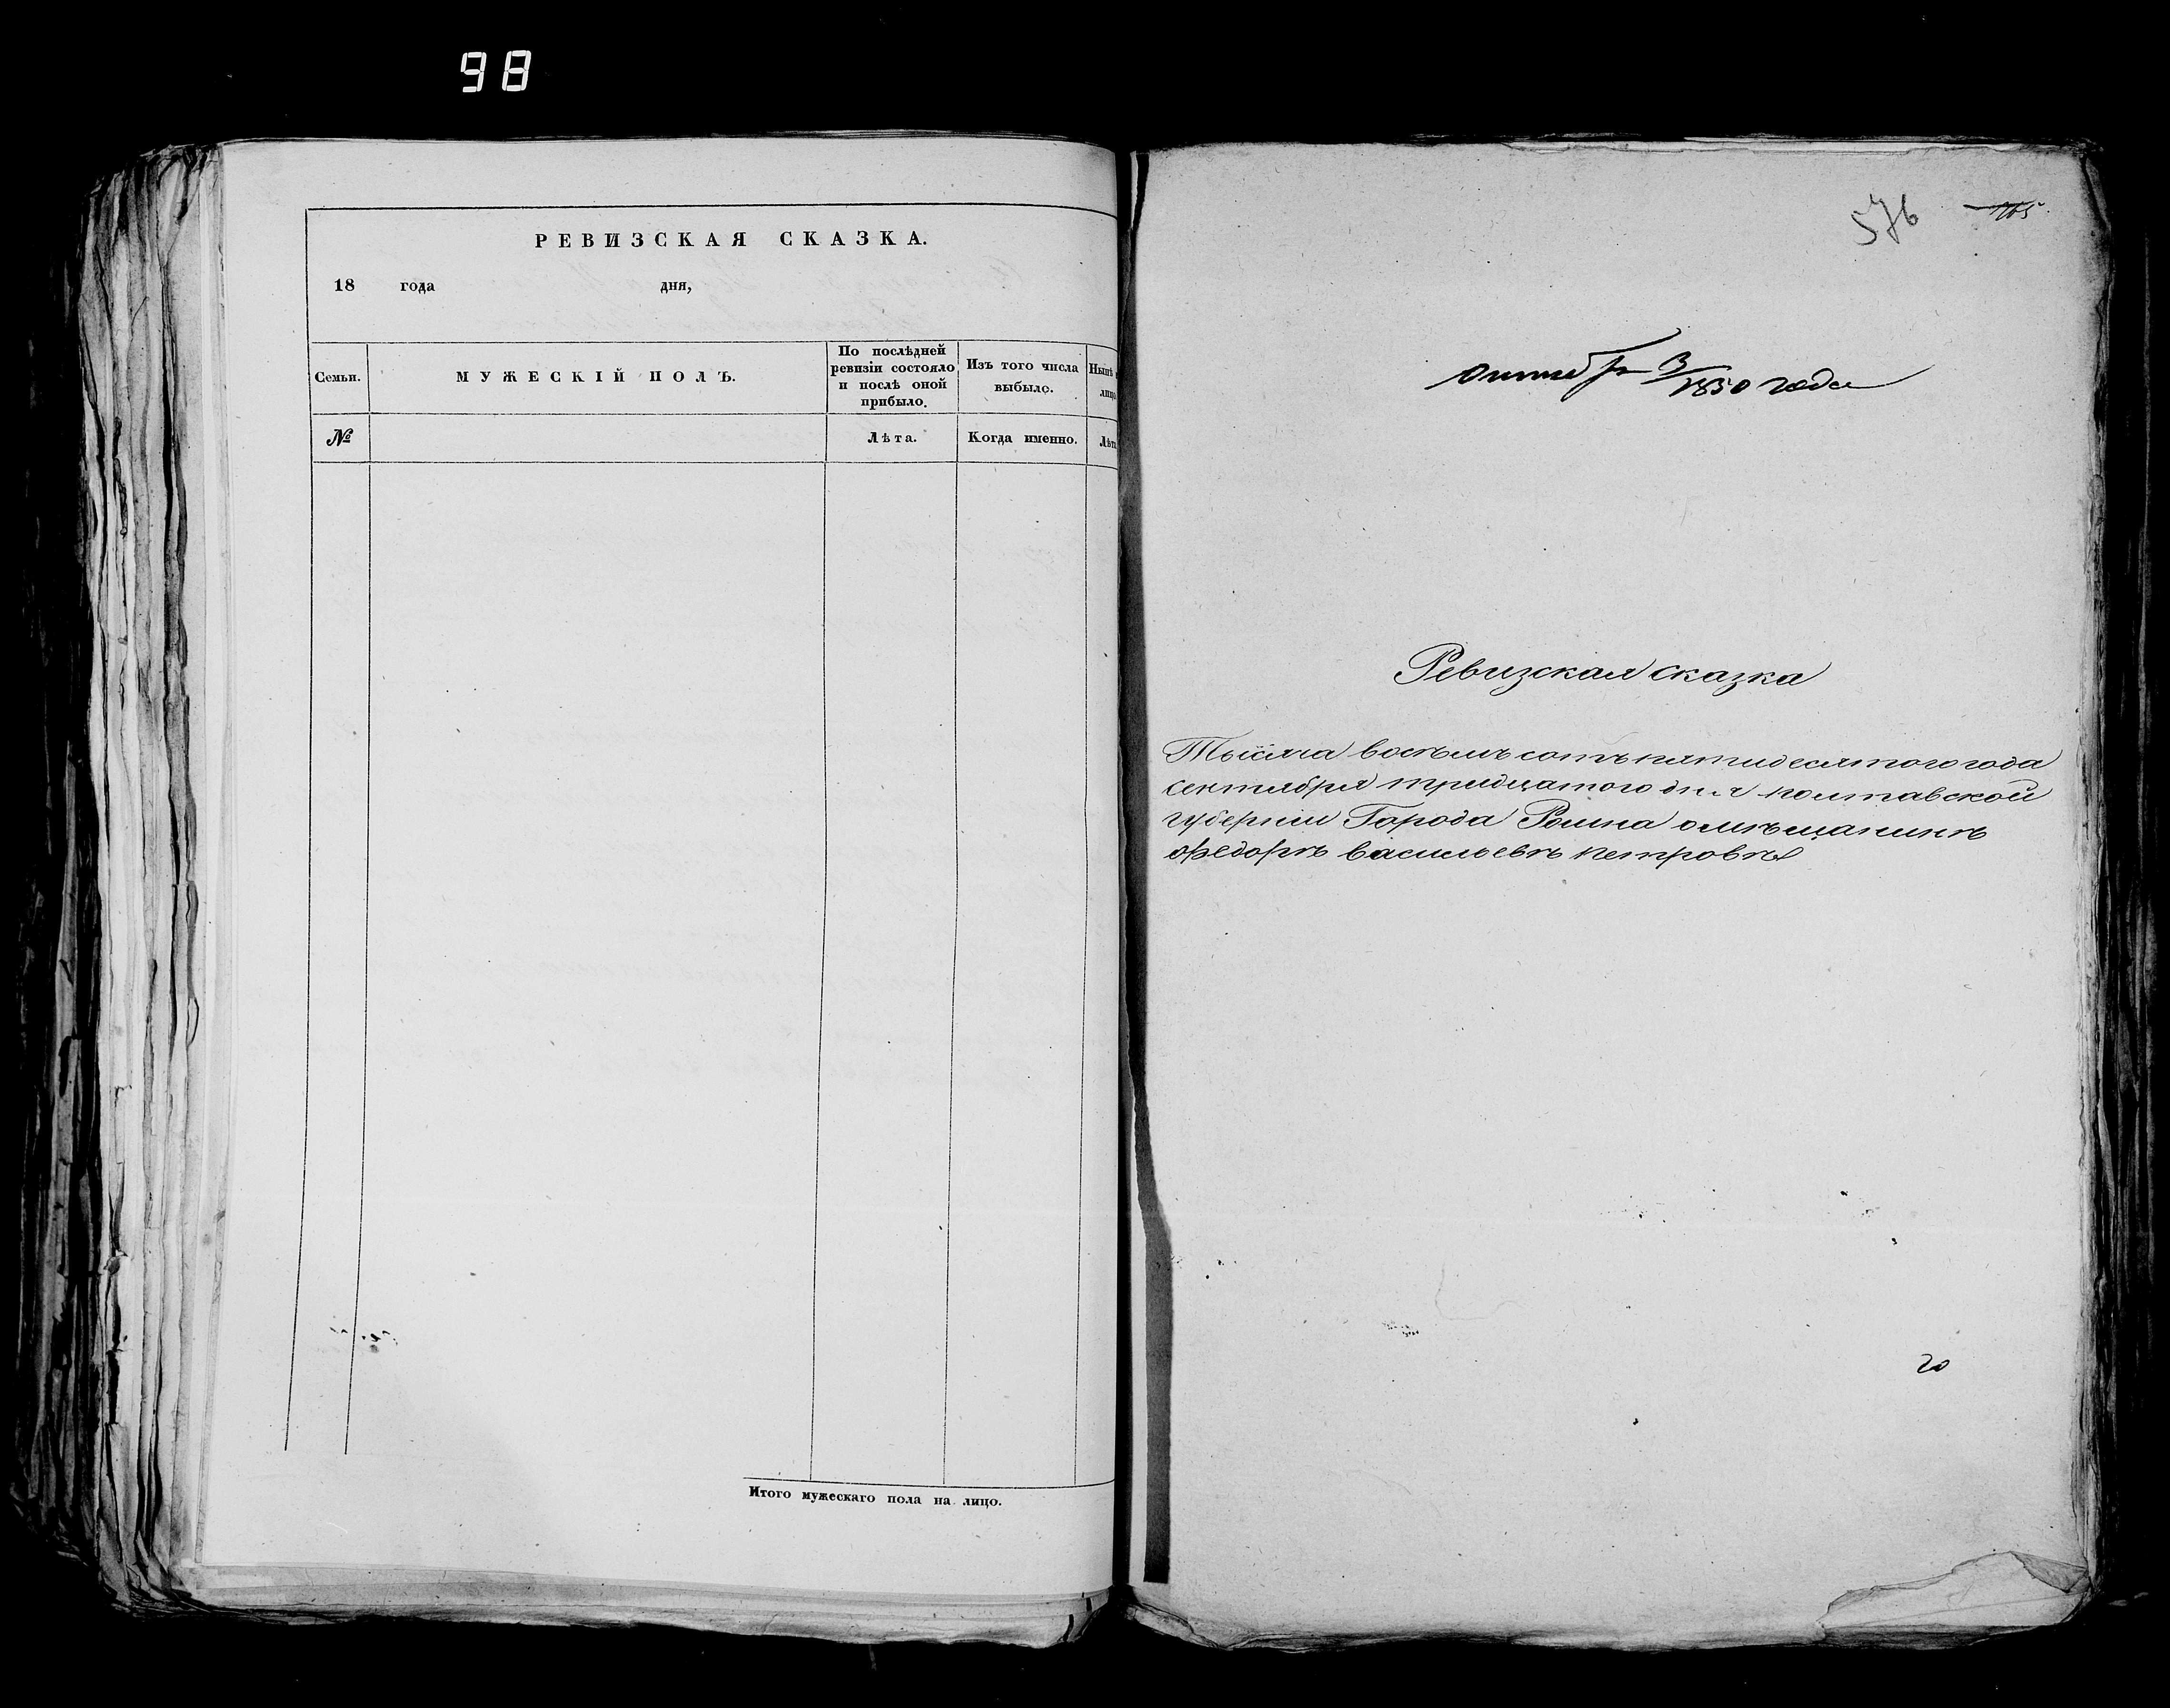 98
РЕВИЗСКАЯ СКАЗКА.
18 года дня,
Семьи.
МУЖЕСКІЙ ПОЛЪ.
По послѣдней
ревизіи состояло
и послѣ оной
прибыло.
Изъ того числа
выбыло.
Нынѣ
лицо
№
Лѣта.
Когда именно.
Лѣта
Итого мужескаго пола на лицо.
576 765
октября 3/1850 года
Ревизская сказка
Тысяча восемъ сотъ пятидесятого года
сентября тридцатого дня полтавской
губерніи Города Ромна о мѣщанинѣ
ѳедорѣ васильевѣ петровѣ
20